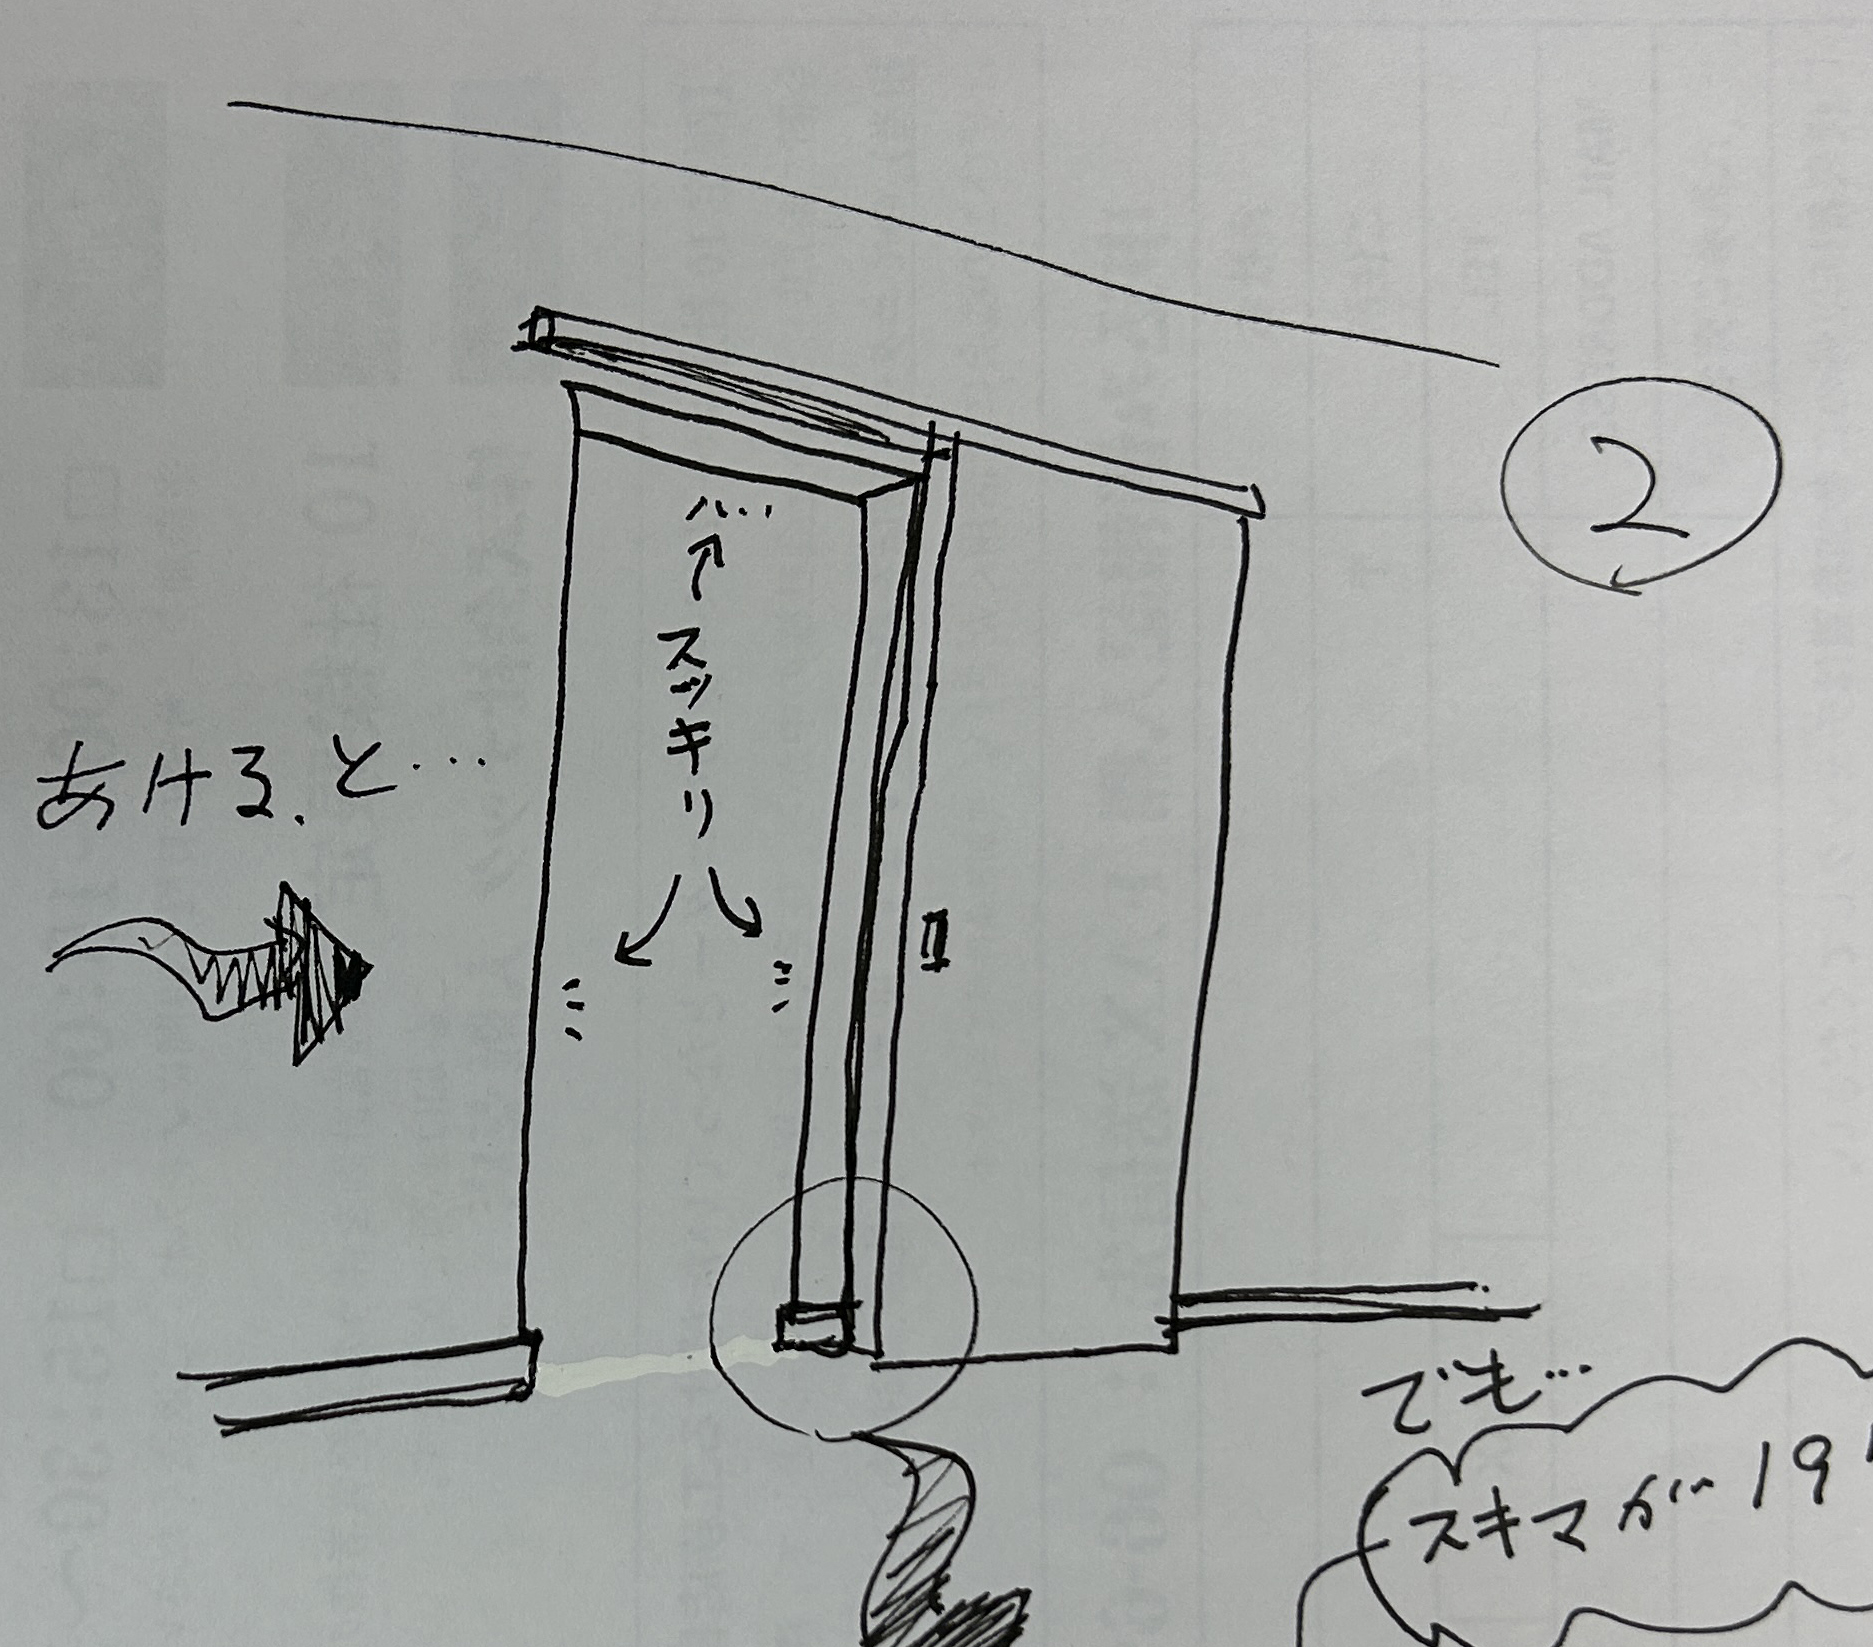 2
スッキリ
あける、と…
でも…
スキマが19